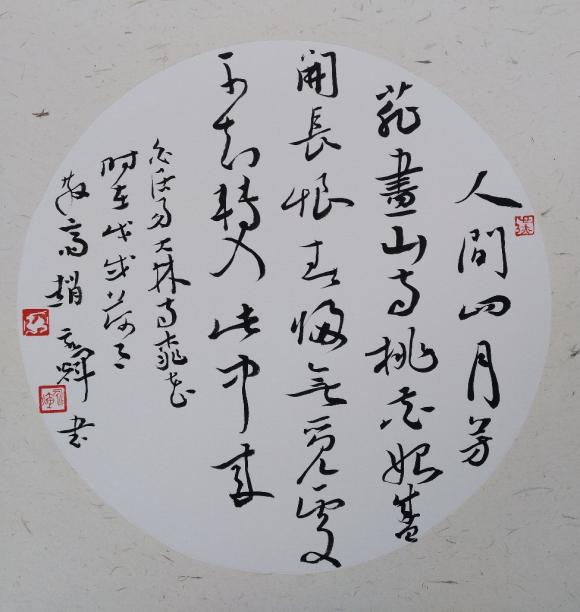 人間四月芳
菲盡山寺桃花始盛
開長恨春歸無覓處
不知轉入此中來
白居易大林寺桃花
時在戊戌荷月
趙輝書